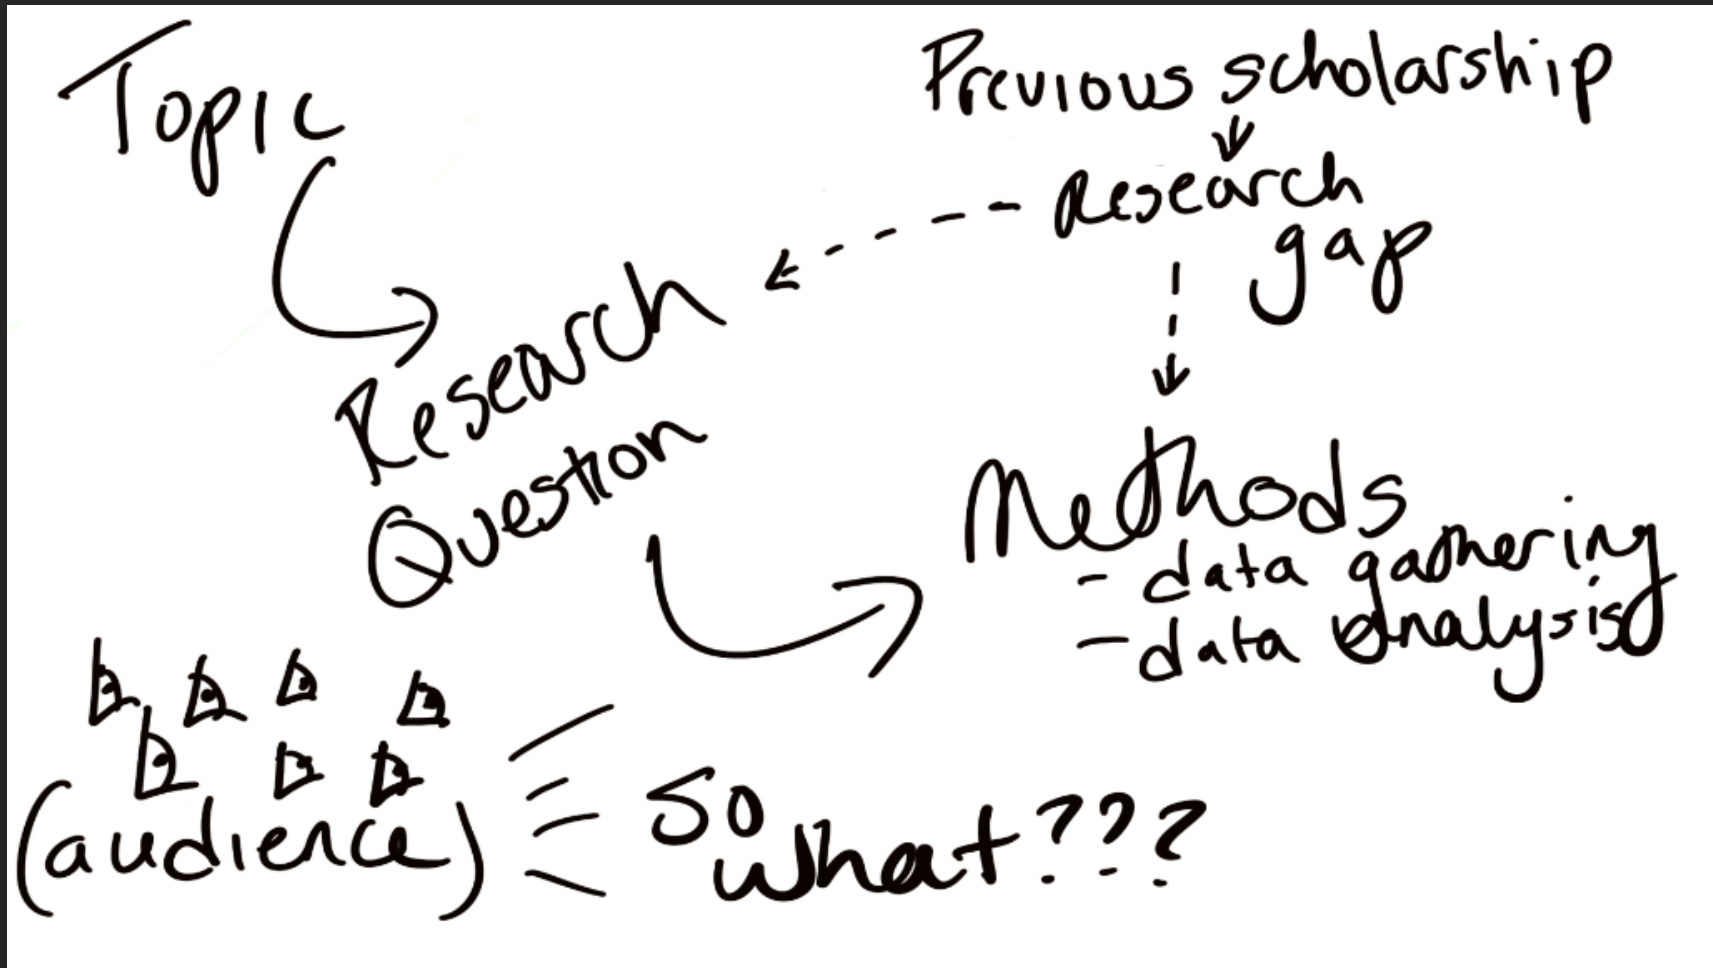 Topic
Previous scholarship
Research
gap
Research
Question
Methods
- data gathering
- data analysis
(audience)
So
what???